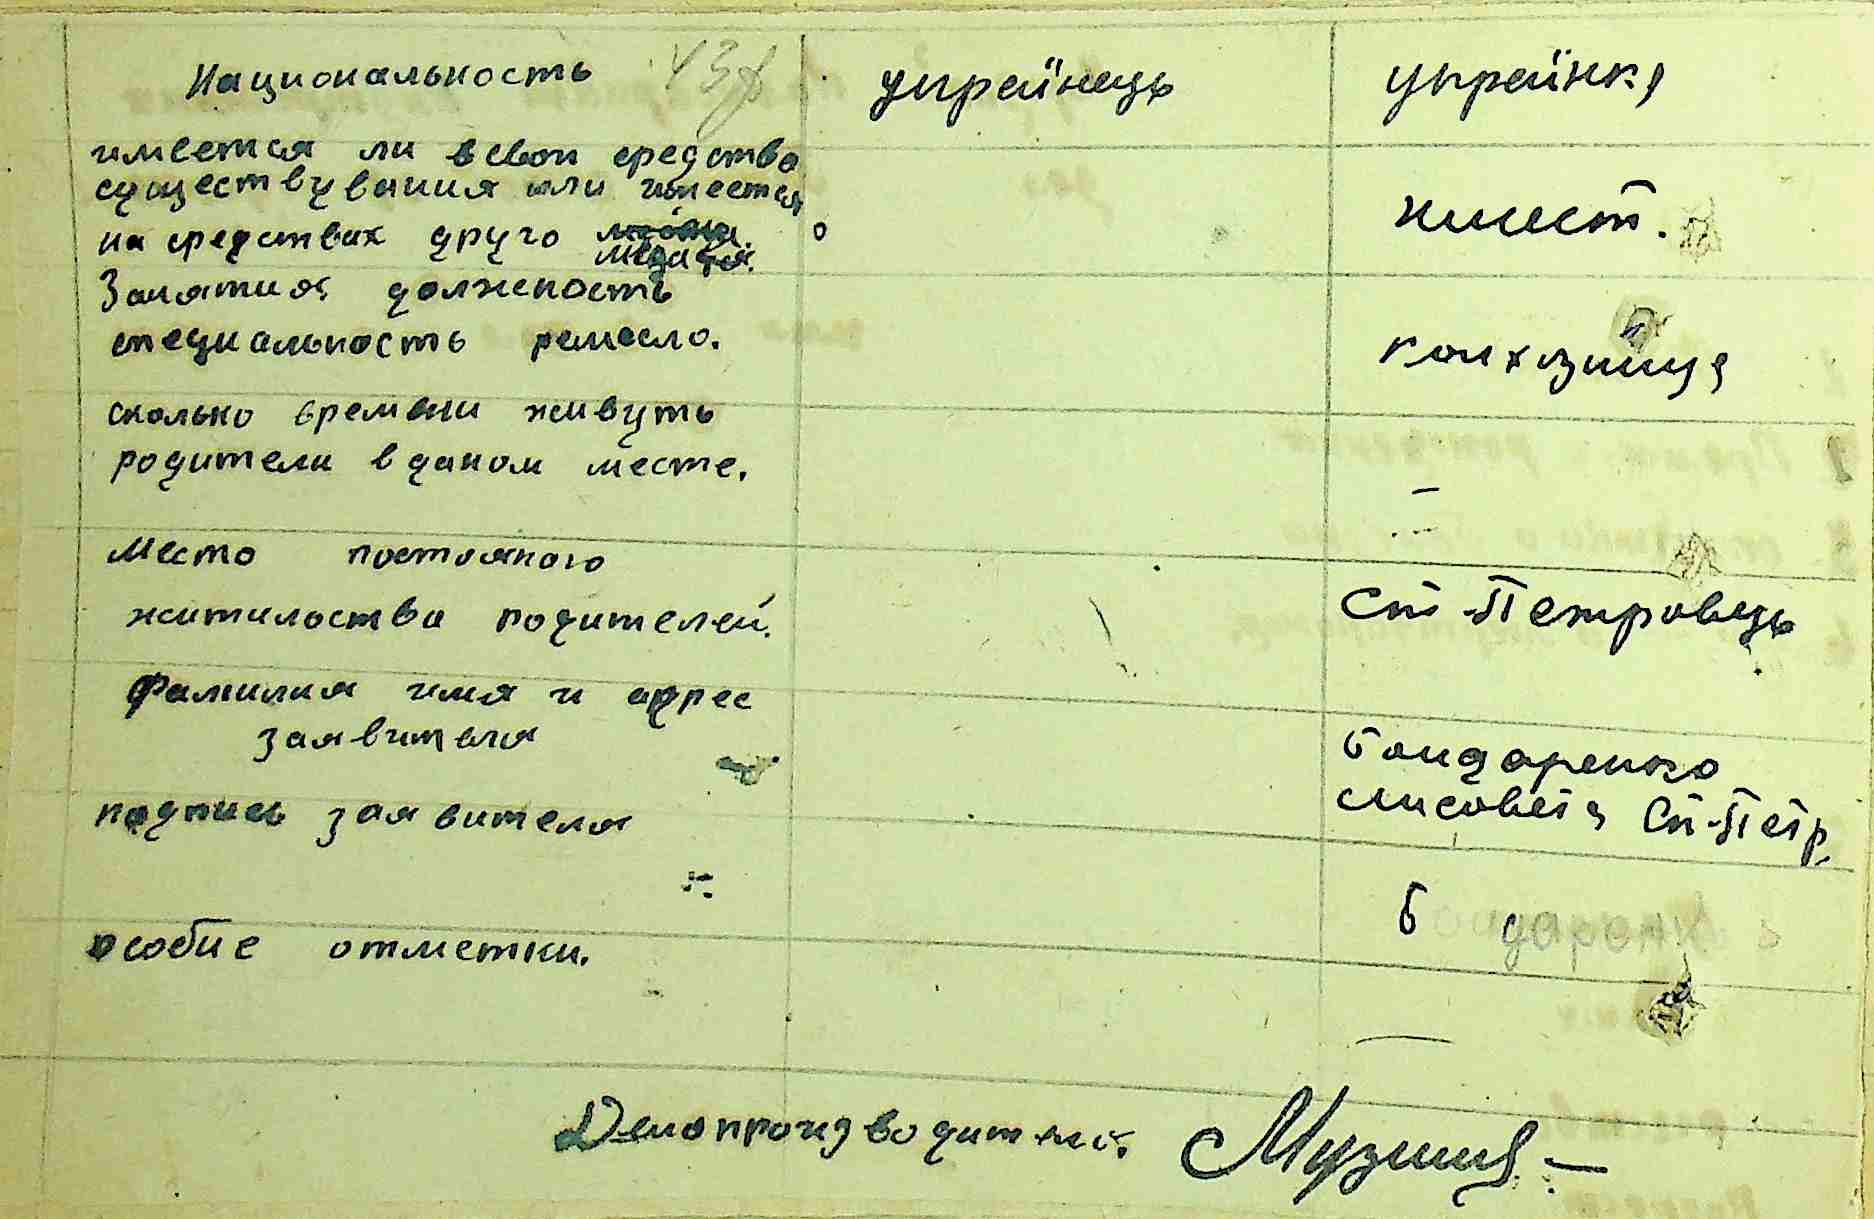 Национальность украйнець украйнка
имеется ли всвои средства
существувания или имеется
на средствах друго нимест.
Занятия должность
специальность ремесло. колхозниця
сколько времени живуть
родители вданом месте. —
Место постояного
жительства родителей. Ст-Петровець
Фамилия имя и адрес
заявителя Бондаренко
лисовета Ст-Петр.
подпись заявителя
Б даренко
особие отметки. —
Делопроизводитель.